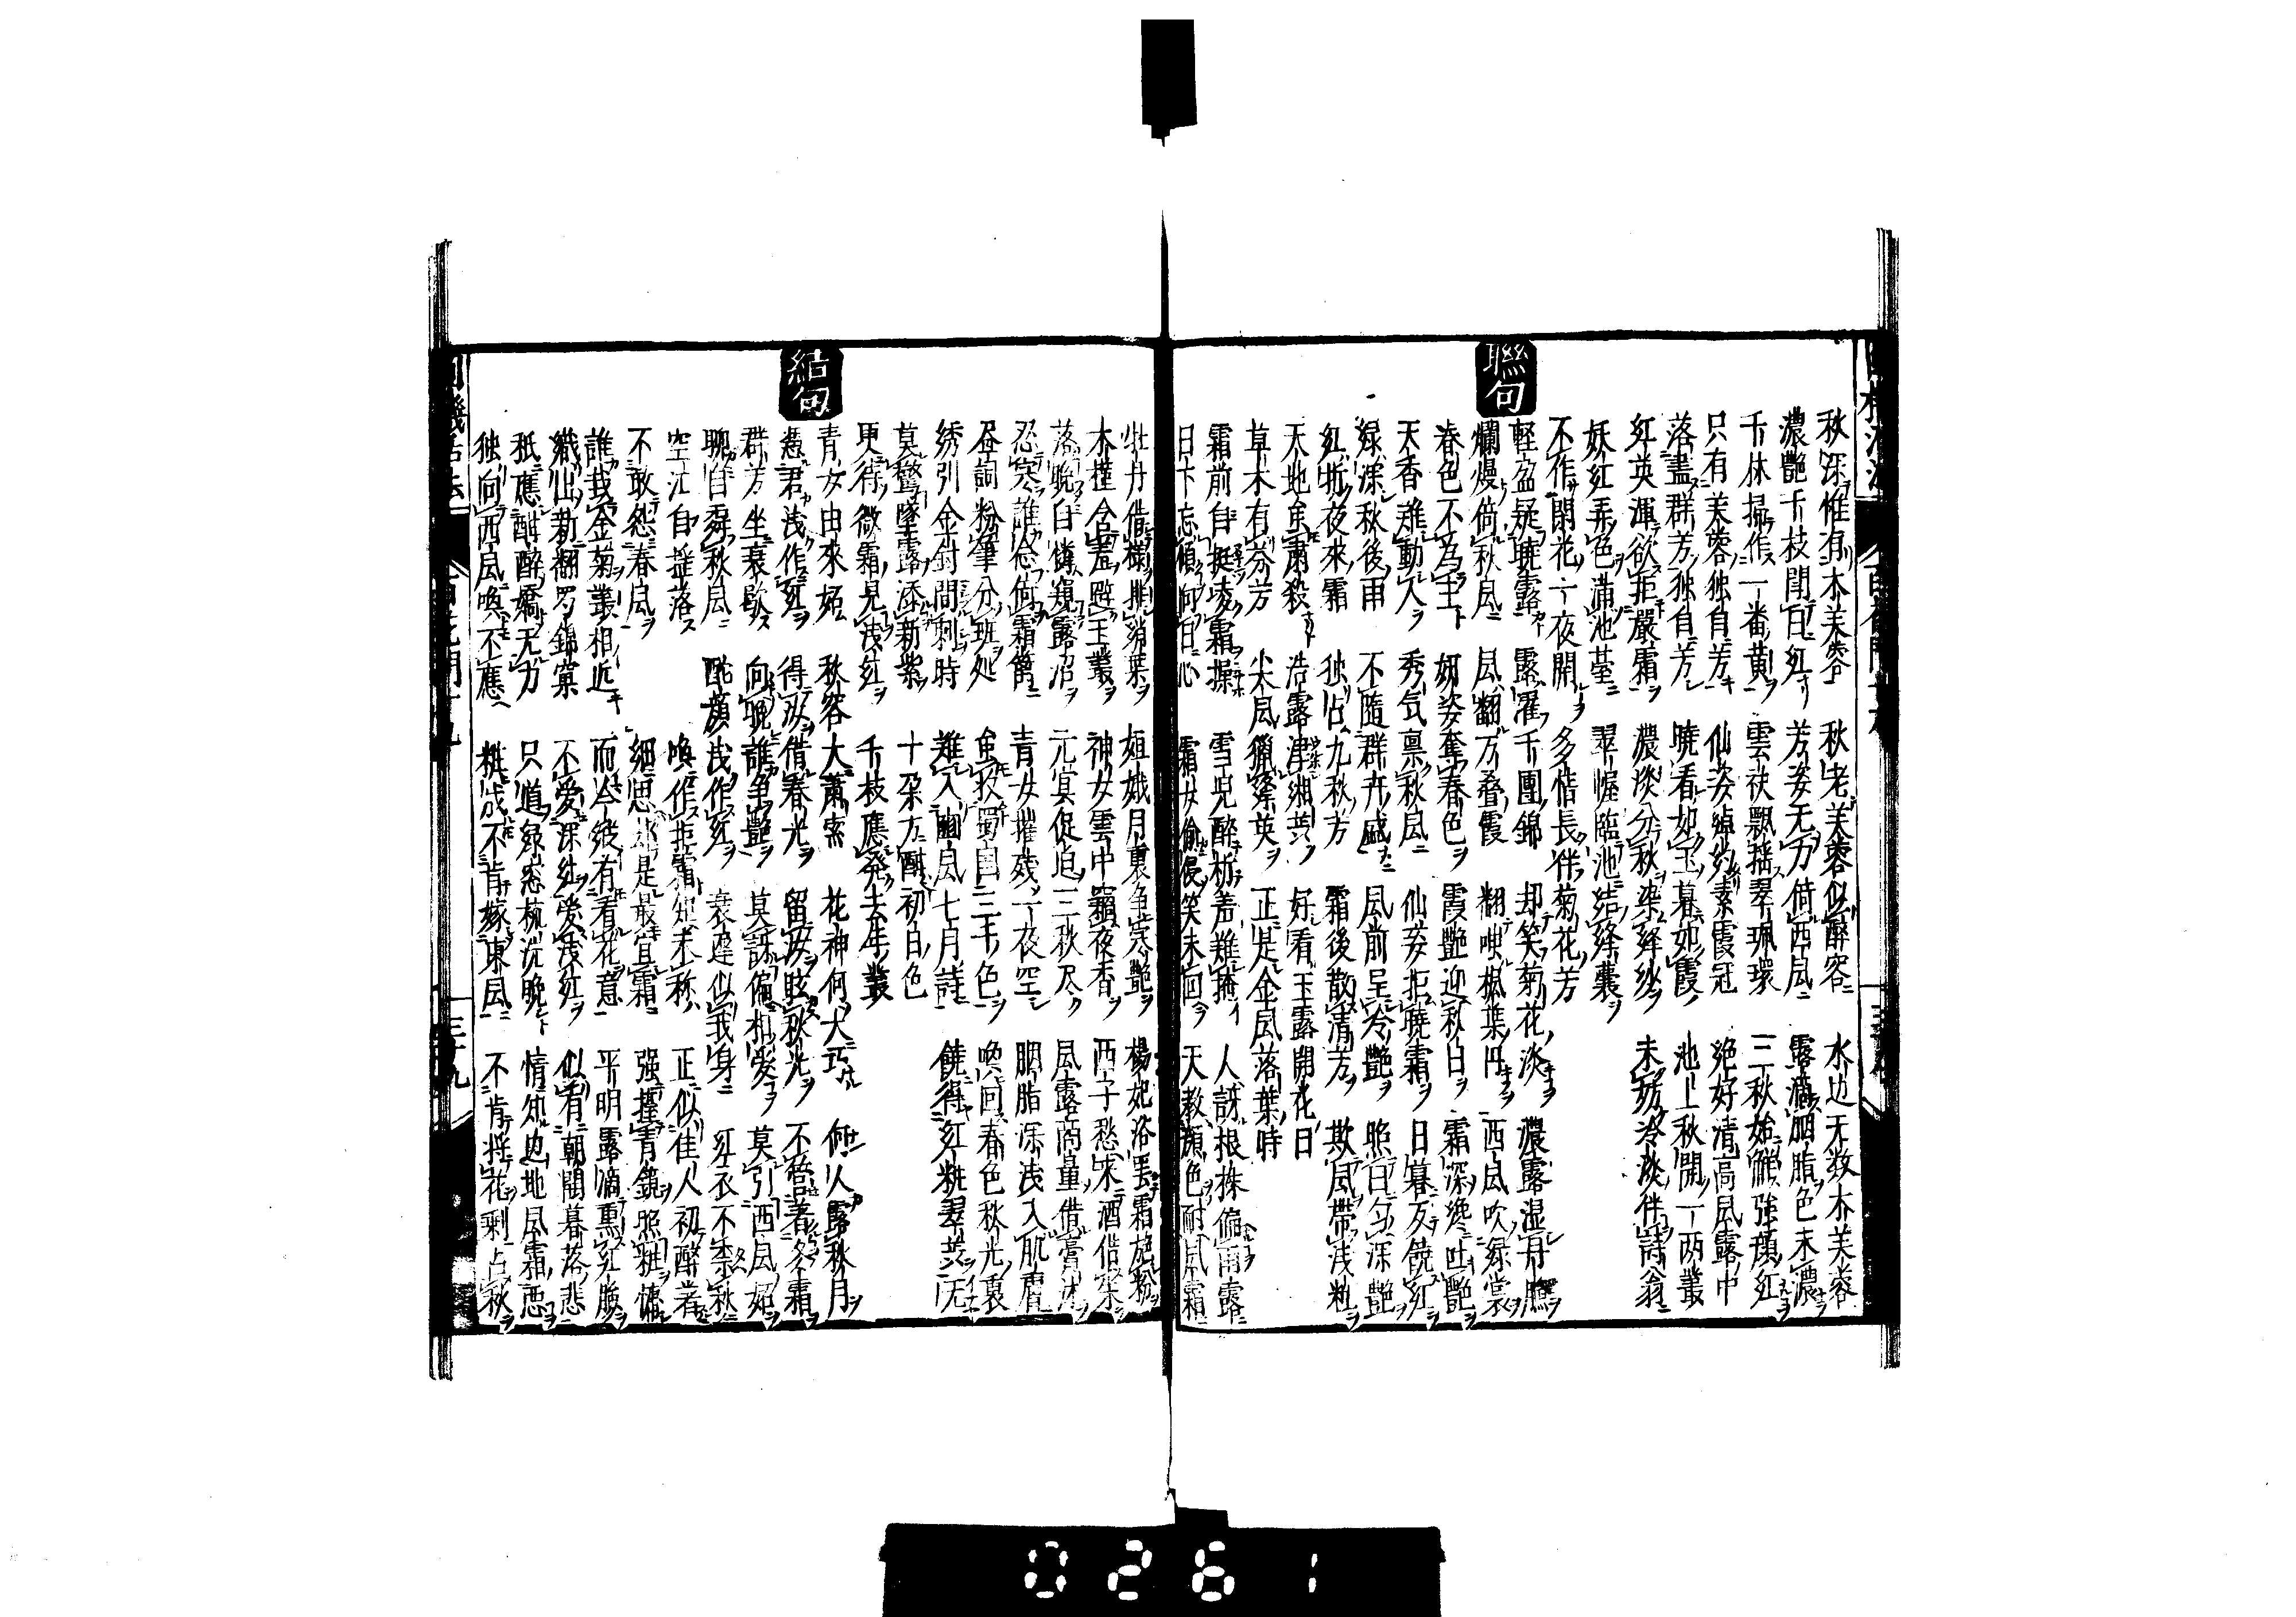 秋深惟有木芙蓉 秋老芙蓉似醉容 水边无数木芙蓉
濃艷千枝開日紅 芳姿无力倚西風 露滴胭脂色未濃
千林掃作一番黄 雲袂飄揺翠珮環 三秋始觧強顔紅
只有芙蓉独自芳 仙姿綽約素霞冠 絶好清高風露中
落盡群芳独自芳 曉看如玉暮如霞 池上秋開一両叢
紅英渾欲拒嚴霜 濃淡分秋染絳紗 未妨冷淡伴詩翁
妖紅弄色蒲池莖 翠幄臨池結絳囊
不作閑花一夜開 多情長伴菊花芳
聯句
軽盈疑曉露 露濯千團錦 却笑菊花淡 濃露湿丹臉
爛熳倚秋風 風翻万叠霞 翻嗤楓葉丹 西風吹緑裳
春色不為主 妍姿奪春色 霞艷迎秋日 霜深纔吐艷
天香難動人 秀気禀秋風 仙姿拒曉霜 日暮反饒紅
緑深秋後雨 不隨群卉盛 風前呈冷艷 照日匀深艷
紅折夜來霜 独占九秋芳 霜後散清芳 欺風帶浅粧
天地皆肅殺 浩露津湘莢 好看玉露開花日
草木有芬芳 尖風獵絳英 正是金風落葉時
霜前自挺凌霜操 雪児醉析声難掩 人訝根株偏雨露
日下忘傾向日心 霜女偷侵笑未回 天教顔色耐風霜
牡丹借樹勝綃葉 姮娥月裏争寒艷 楊妃浴罢霜施粉
木槿合羞避玉叢 神女雲中竊夜香 西子愁來酒借深
落晩白憐窺露沼 元冥促迫三秋尽 風露商量借膏沐
忍寒誰念倚霜籬 青女摧残一夜空 胭脂深浅入肌膚
昼詞粉筆分班処 魚放蜀国三千色 喚回春色秋光裏
綉引金針間刺時 難入豳風七月詩 饒得紅粧翠莢无
莫驚墜露添新紫 十朶方酣初日色
更得微霜見浅紅 千枝應発去年叢
結句
青女由來妬 秋容大蕭索 花神何大巧 何人露秋月
惹君浅作紅 得汝借春光 留汝眩秋光 不啻著冬霜
群芳坐衰歇 向晩誰争艷 莫訝偏相愛 莫引西風妬
聊自舞秋風 酡顔浅作紅 衰遲似我身 紅衣不柰秋
空江自揺落 喚作拒霜知未称 正似佳人初醉著
不敢怨春風 細思却是最宜霜 强擡青鏡照粧慵
誰我金菊叢相近 而今縦有看花意 平明露滴熏紅臉
織出新翻罗錦窠 不愛深紅愛浅紅 似有朝開暮落悲
秖應酣醉嬌无力 只道緑窓梳洗晩 情知边地風霜悪
独向西風喚不應 粧成不肯嫁東風 不肯将花剩占秋
三十九
0261